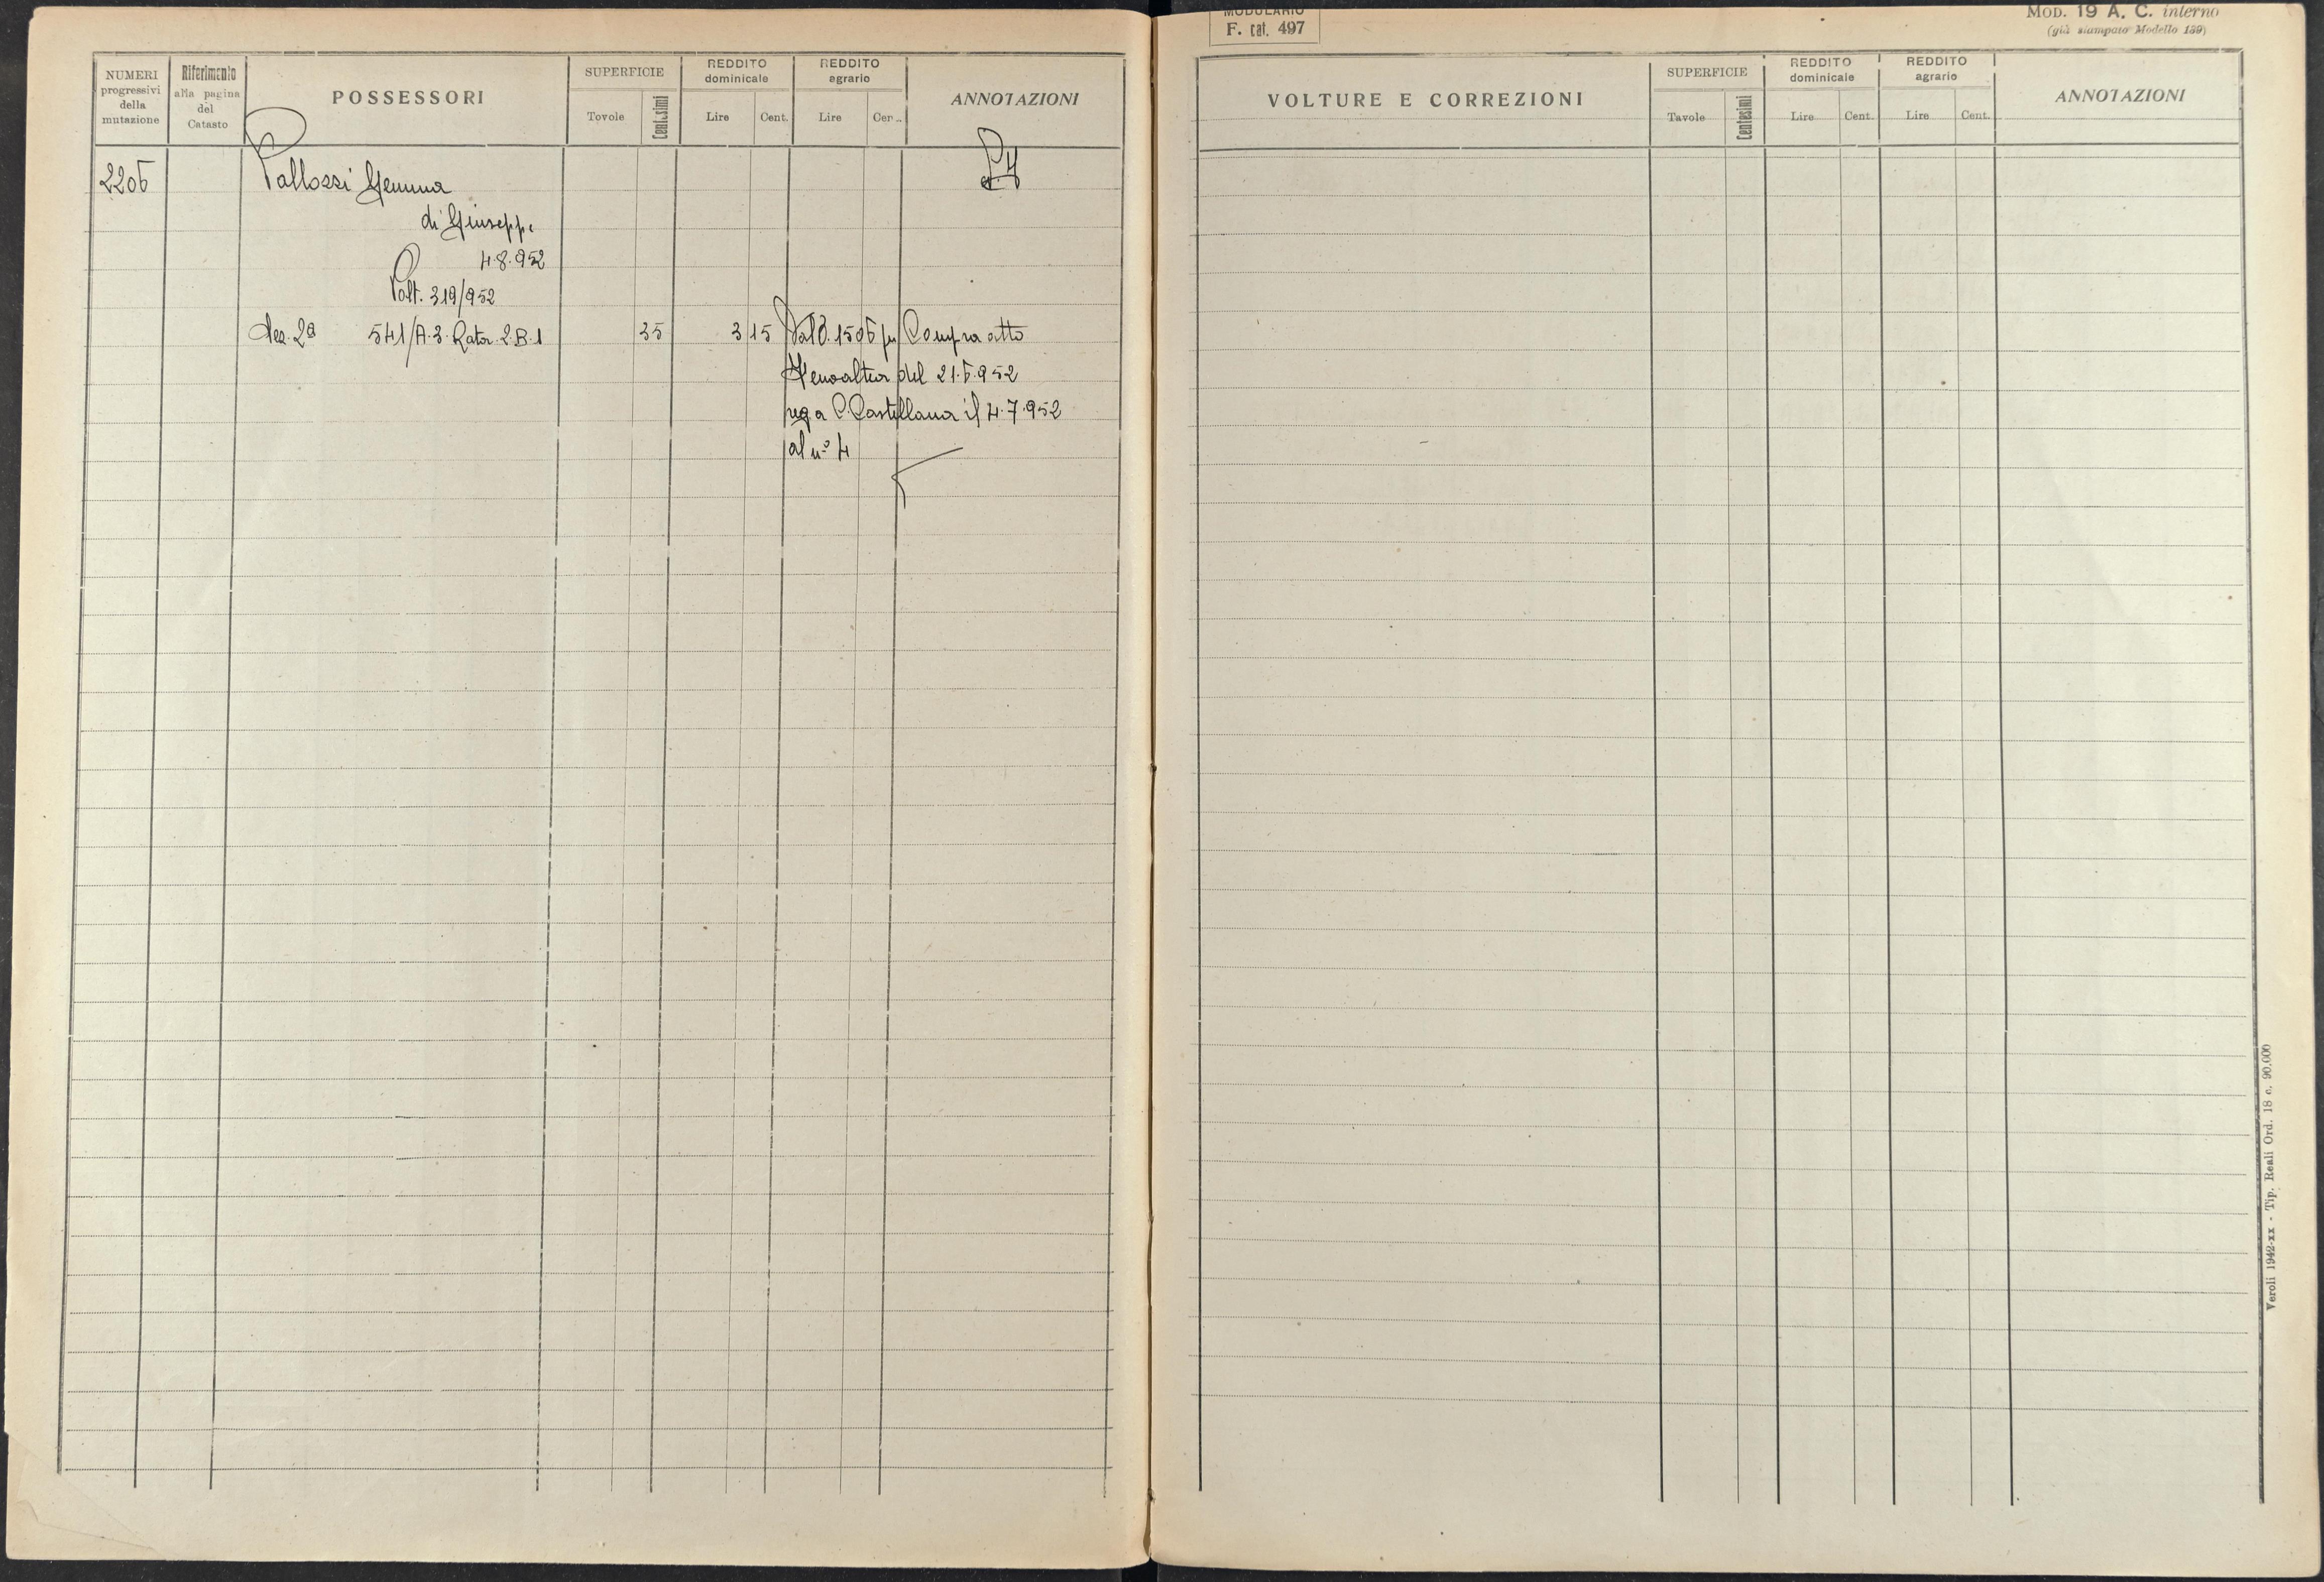 NUMERI progressivi della mutazione
Riferimento alla pagina del Catasto
POSSESSORI
SUPERFICIE
Tavole
Centesimi
REDDITO dominicale
Lire
Cent.
REDDITO agrario
Lire
Cen..
ANNOTAZIONI
2206
Pallozzi Gemma
di Giuseppe
4.8.952
Volt. 319/952
Sez. 2ª 541/A.3. Rator. 2.B.1 35 3 15 Dal O. 1506 per Compra atto
del 21.6.952
reg a C. Castellana il 4.7.952
al n° 4
MODULARIO
F. cat. 497
MOD. 19 A. C. interno
(già stampato Modello 139)
VOLTURE E CORREZIONI
SUPERFICIE
Tavole
Centesimi
REDDITO dominicale
Lire
Cent.
REDDITO agrario
Lire
Cent.
ANNOTAZIONI
Veroli 1942-xx - Tip. Reali Ord. 18 c. 90.000